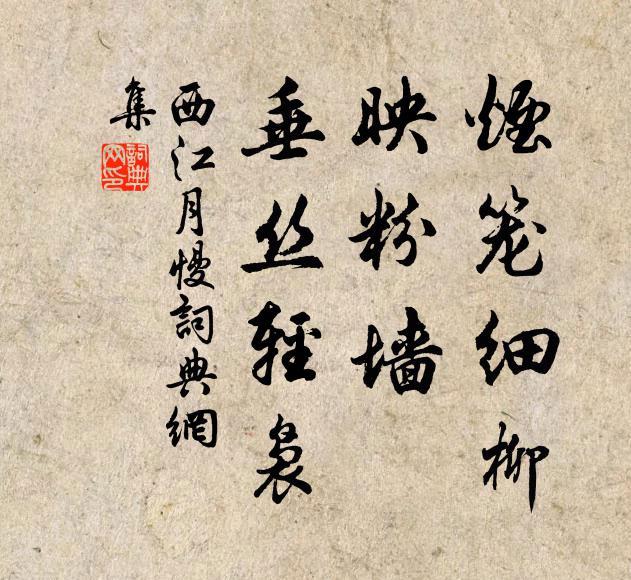 煙笼细柳
映粉墙
垂丝輕袅
西江月慢詞典網
集
詞典
网印